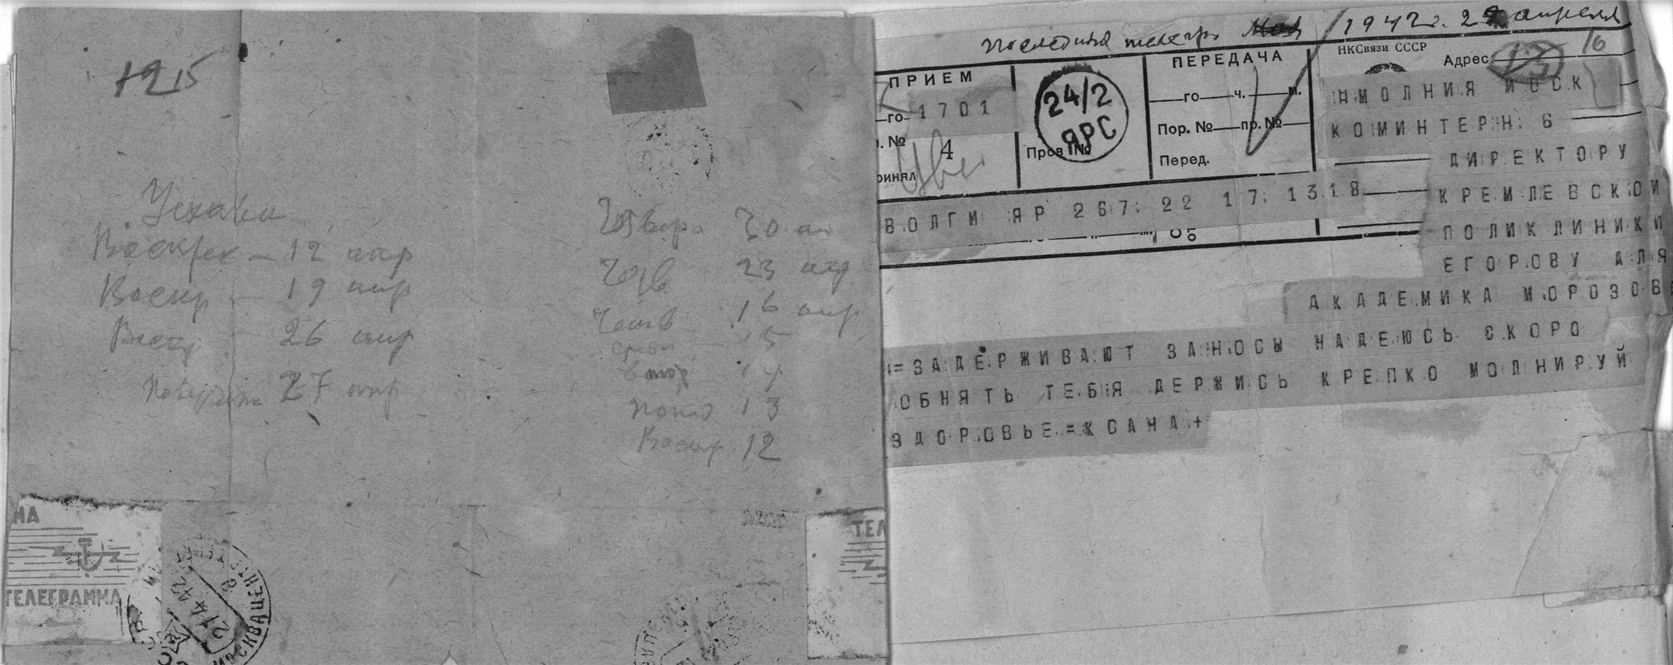 1915
Уехали
Воскрес – 12 апр
Воскр – 19 апр
Воскр – 26 апр
27 апр
30 ап
Четв 23 апр
Четв 16 апр
сред 15
втор 14
понед 13
Воскр 12
МА
ТЕЛЕГРАММА
ТЕЛ
21 4 42
МОСКВА
Последняя телегр 1942 г. апреля
ПРИЕМ
ПЕРЕДАЧА
НКСвязи СССР
Адрес:
13
16
го 1701
го ч. м.
24/2
ЯРС
МОЛНИЯ МОСК
КОМИНТЕРН 6
№ 4
Пров. №
Пор. № пр. №
Перед.
ринял
ДИРЕКТОРУ
КРЕМЛЕВСКОЙ
ВОЛГИ ЯР 267 22 17 1318
ПОЛИКЛИНИКИ
ЕГОРОВУ ДЛЯ
АКАДЕМИКА МОРОЗОВ
=ЗАДЕРЖИВАЮТ ЗАНОСЫ НАДЕЮСЬ СКОРО
ОБНЯТЬ ТЕБЯ ДЕРЖИСЬ КРЕПКО МОЛНИРУЙ
ЗДОРОВЬЕ=КСАНА+